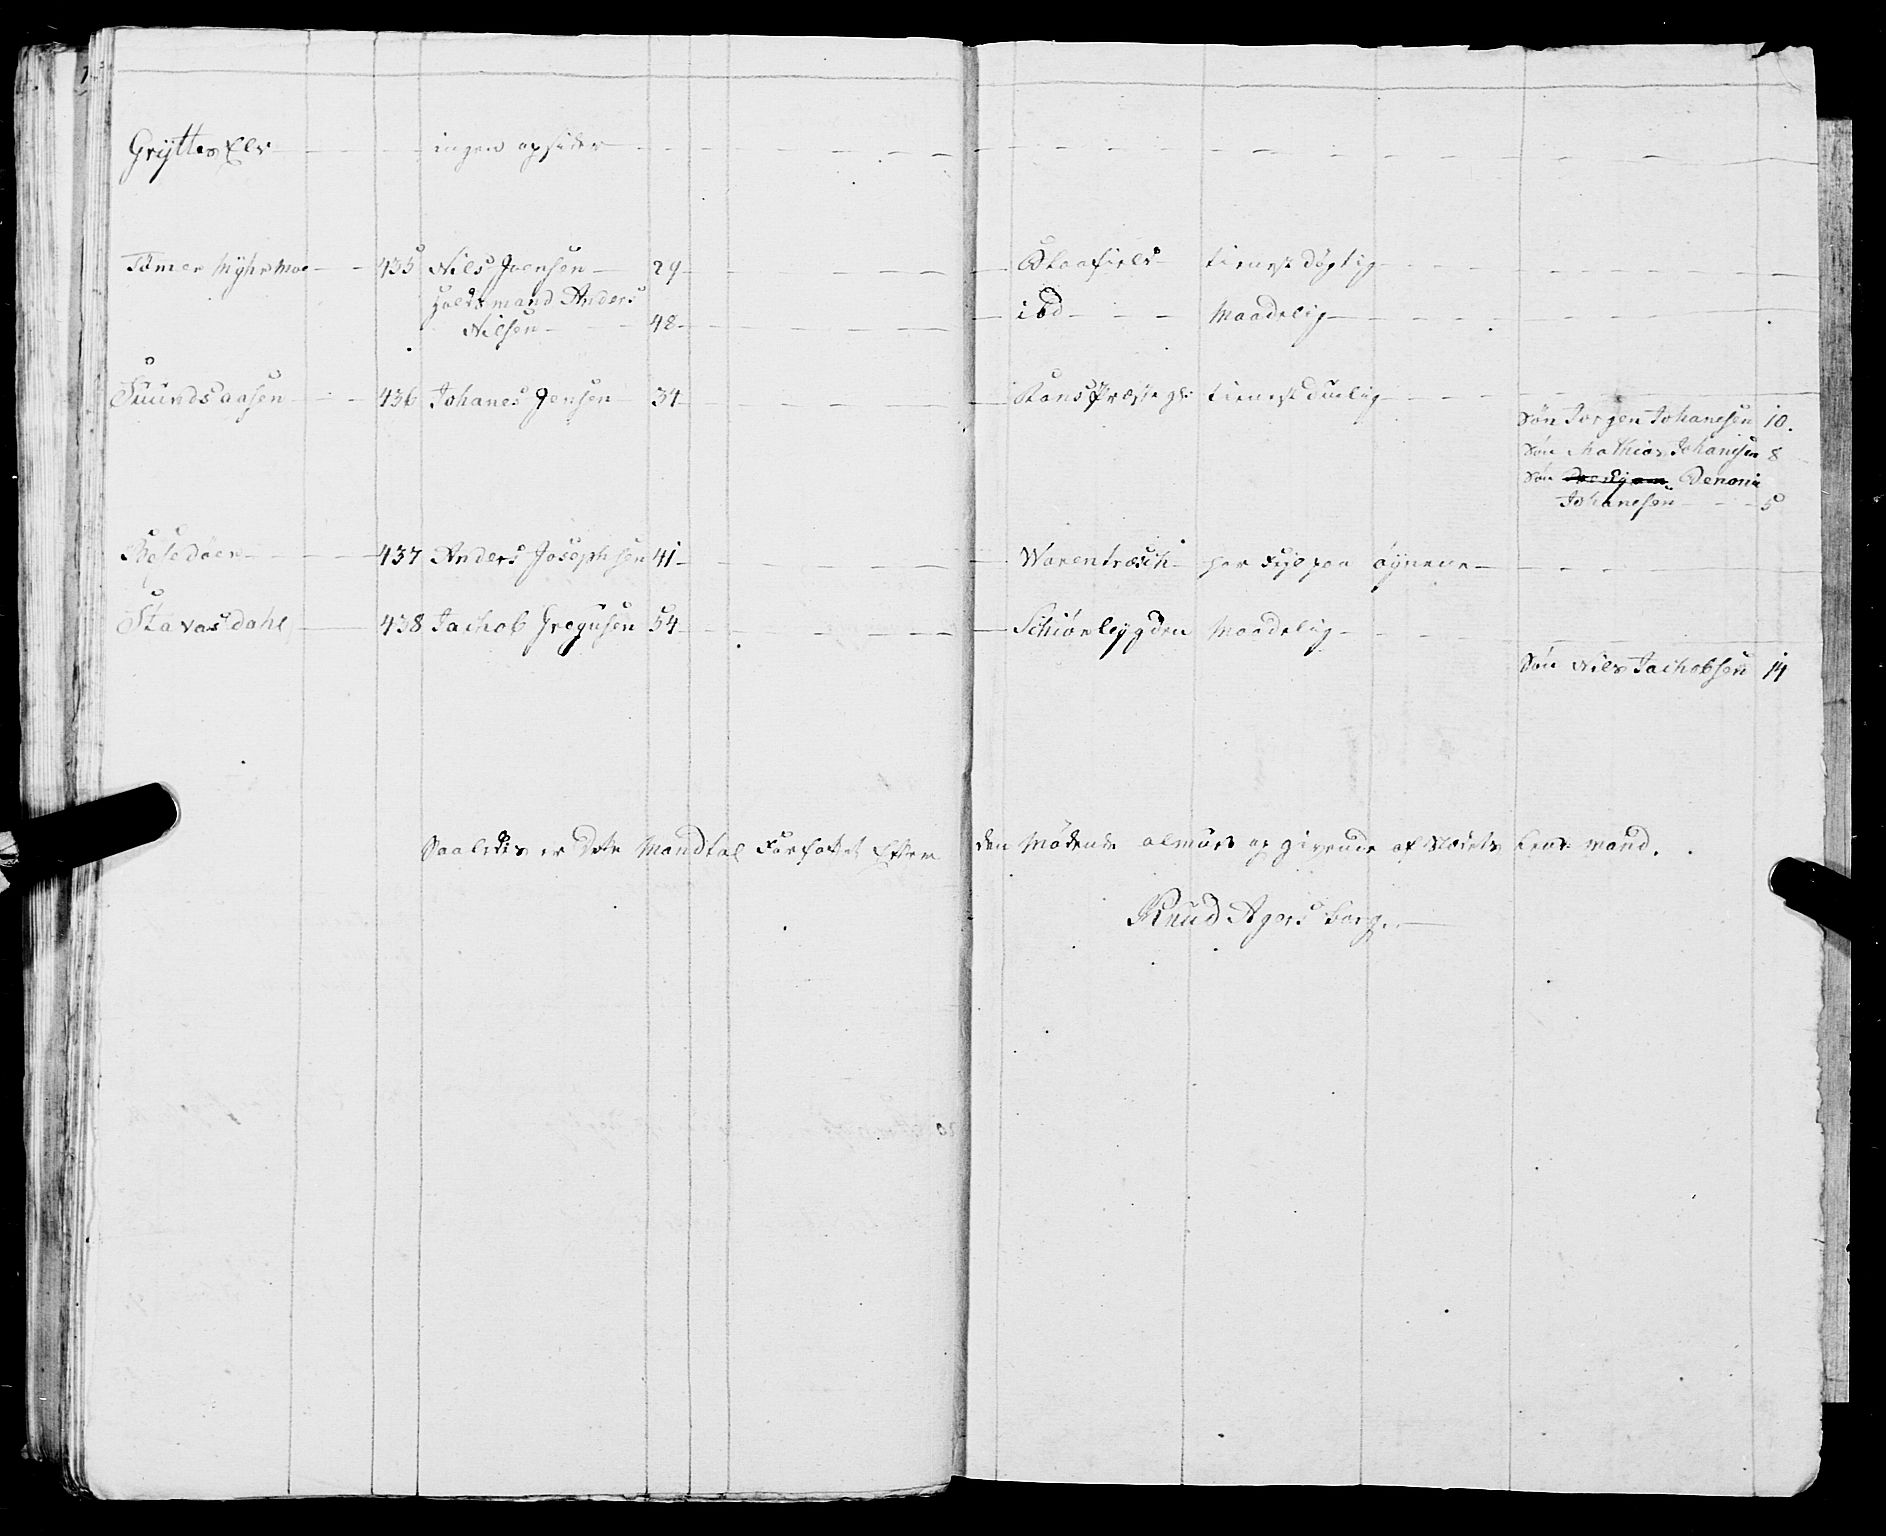 Grÿttes Elv - - - ingen opsider - - -
Tømer Myhr Moe - - 435 Nils Joensen - 29 - - - Staafield tienest døgtig - - -
Holdsmand Anders
Nilsen - - 48 - - - ibd - - - Maadelig - - -
Suundsaasen - - 436 Johanes Jensen 34 - - - Ranspræste gl: tienest duelig - - -
Søn Jørgen Johanesen 10.
Søn Mathias Johanesen 8
Søn Benoni
Johanesen - - - 5
437 Anders Josephsen 41 - - - Warentræsch har Fejl paa øynene - - -
Stavasdahl - 438 Jachob Gregusen 54 - - - Schiønlygden Maadelig - - -
Søn Nils Jachobsen 14
Saaledes er Dete Mandtal Forfattet Efter den Mødende almues op givende af stædets lensmand.
Knud Agersborg.